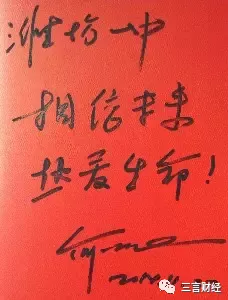 潍坊一中
相信未来
热爱生命！
三言财经